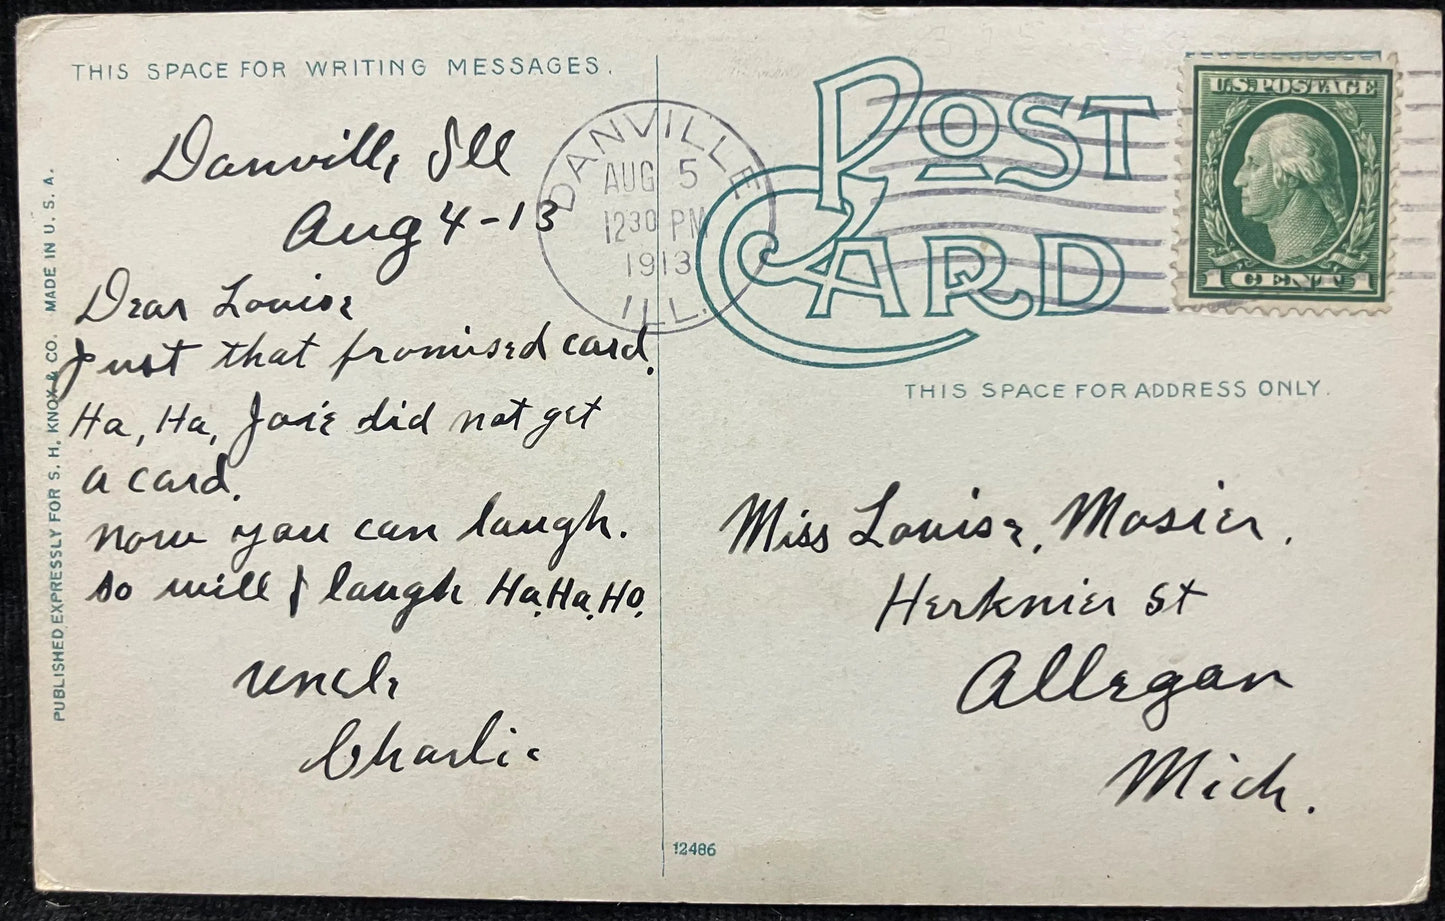 THIS SPACE FOR WRITING MESSAGES.
Danville, Ill
Aug 4-13
Dear Louise
Just that promised card.
Ha, Ha, Josie did not get
a card.
now you can laugh.
so will I laugh Ha, Ha, Ho.
Uncle
Charlie
PUBLISHED EXPRESSLY FOR S. H. KNOX & CO. MADE IN U. S. A.
DANVILLE
AUG 5
1230 PM
1913
ILL.
POST
CARD
U.S. POSTAGE
1 CENT 1
THIS SPACE FOR ADDRESS ONLY.
Miss Louise, Mosier.
Herkmier St
Allegan
Mich.
12486